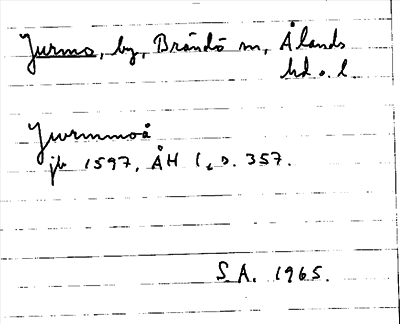 Jurmo, by, Brändö sn, Ålands
hd o. l.
Jwrmmoå
jb 1597, ÅH I, s. 357.
S.A. 1965.